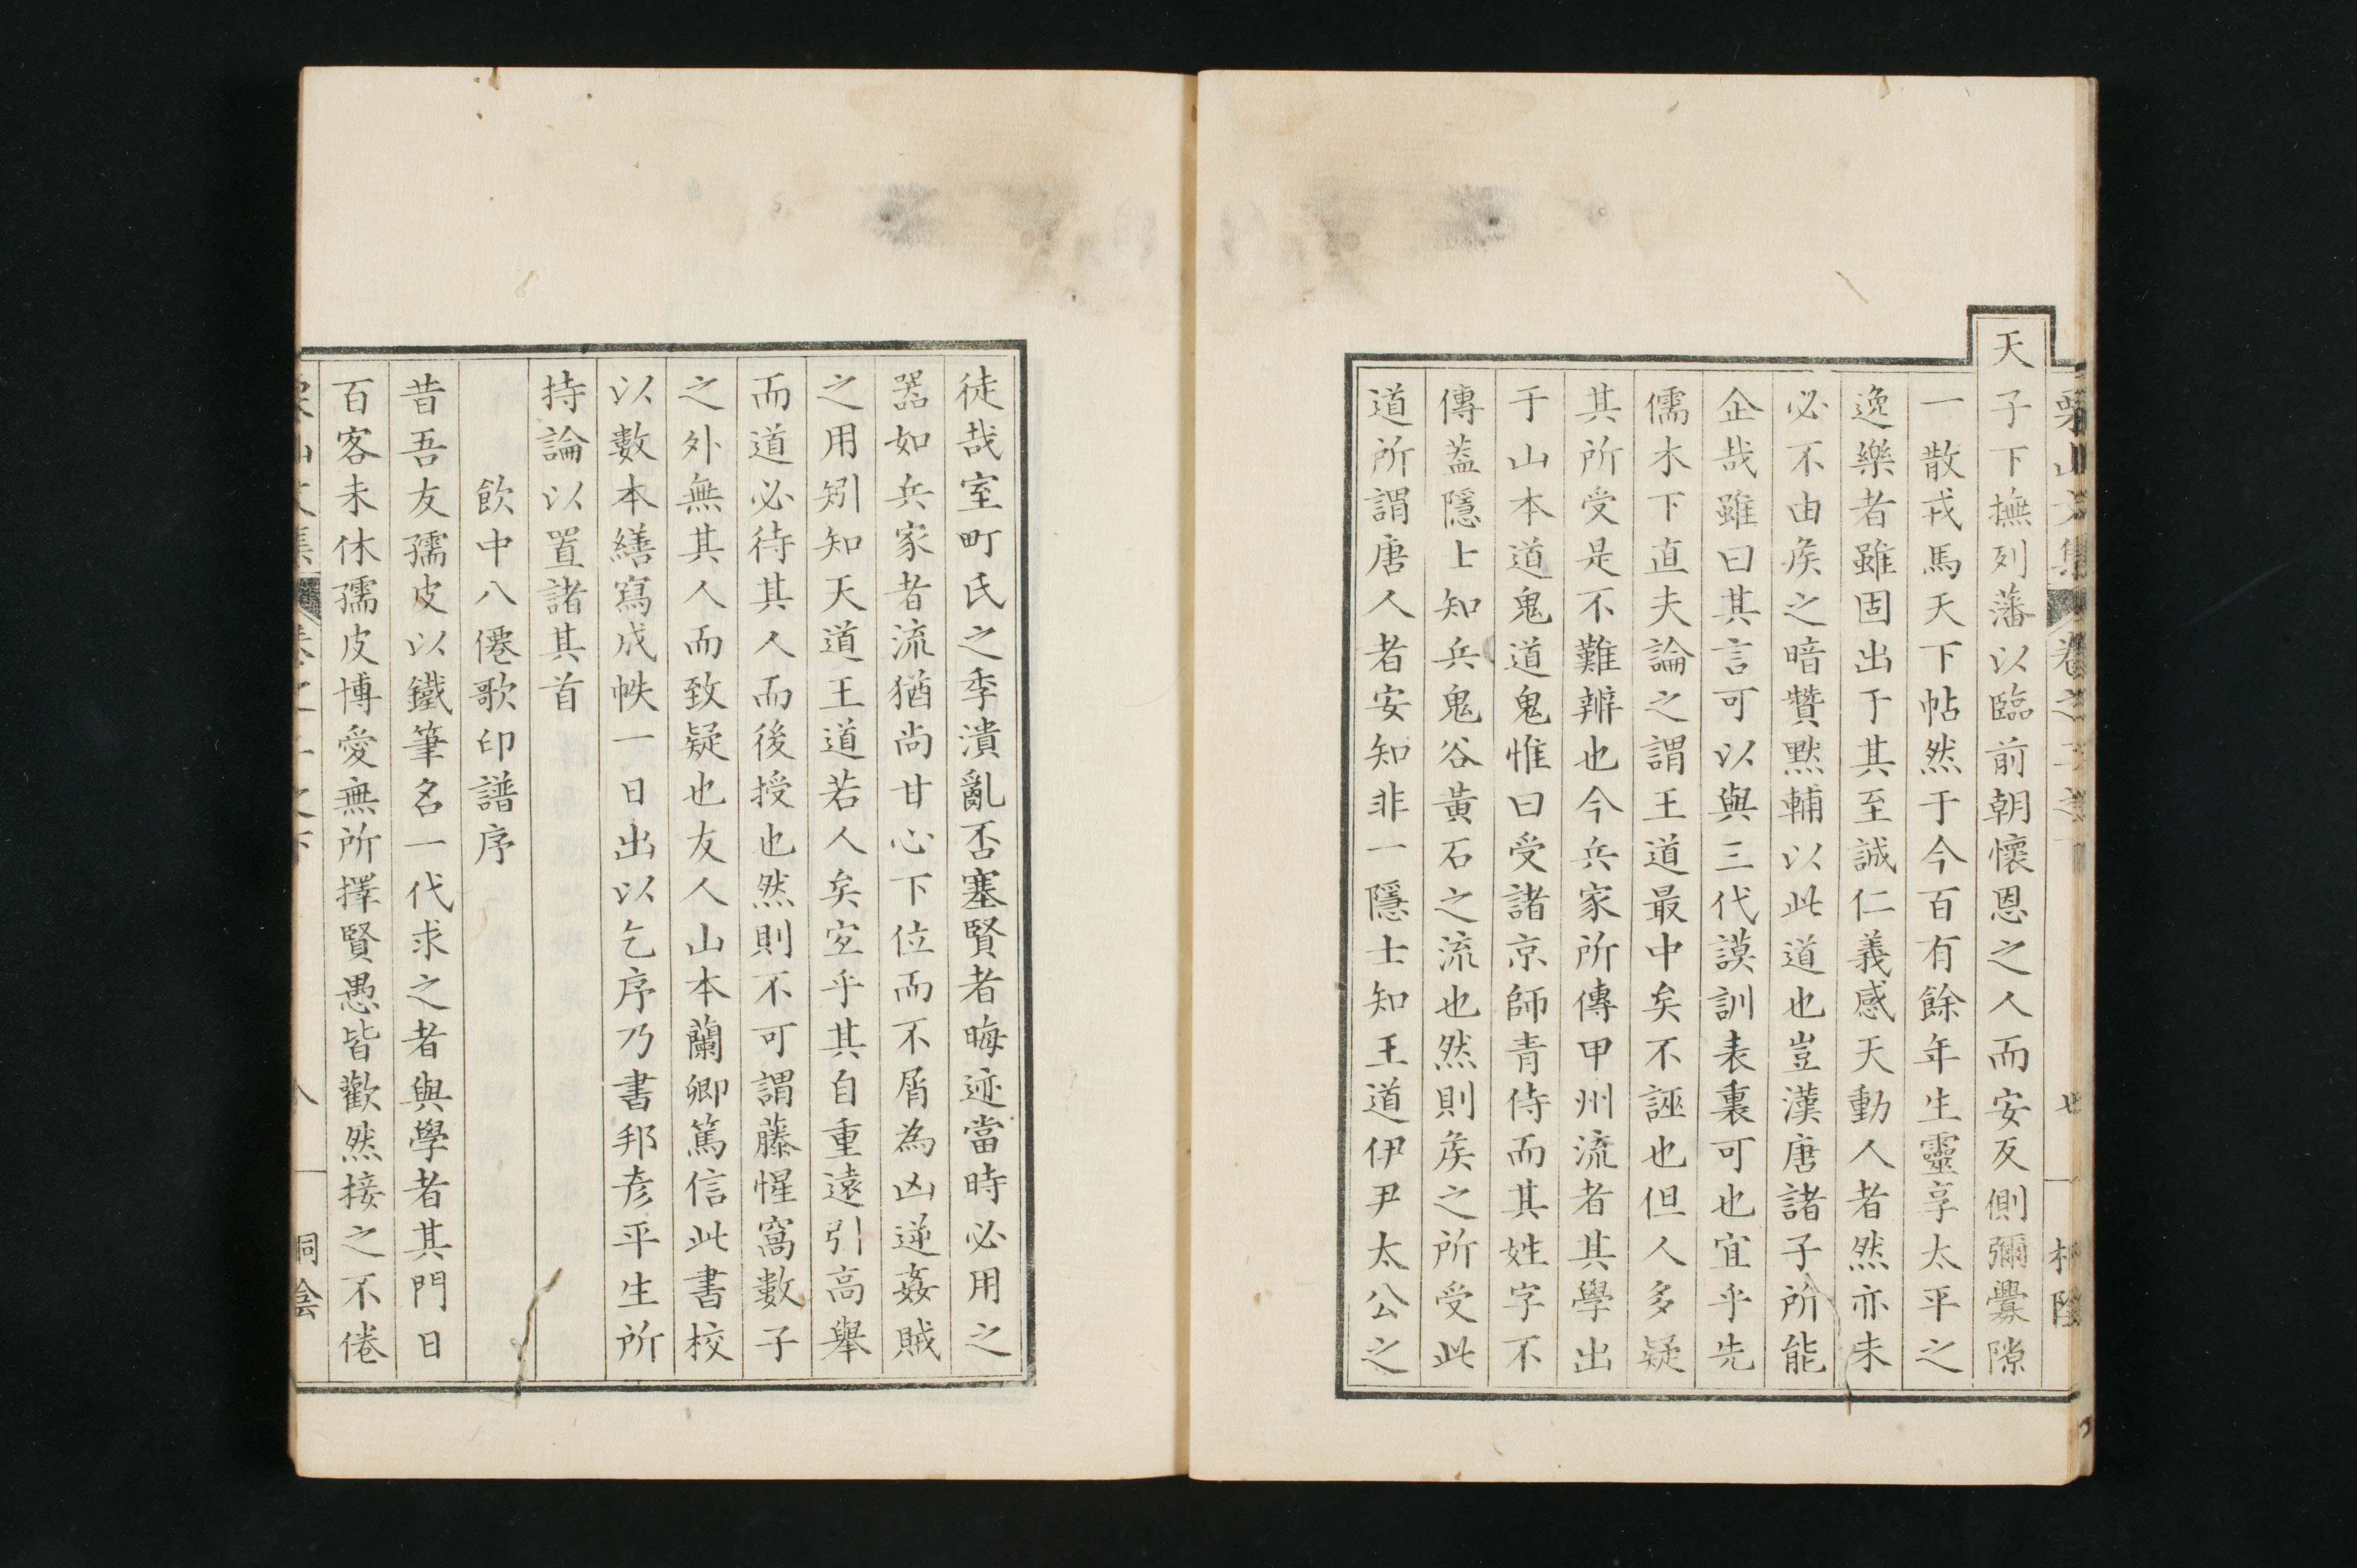 天子下撫列藩以臨前朝懷恩之人而安反側彌釁隙
一散戎馬天下帖然于今百有餘年生靈享太平之
逸樂者雖固出于其至誠仁義感天動人者然亦未
必不由矦之暗贊默輔以此道也豈漢唐諸子所能
企哉雖曰其言可以與三代謨訓表裏可也宜乎先
儒木下直夫論之謂王道最中矣不誣也但人多疑
其所受是不難辨也今兵家所傳甲州流者其學出
于山本道鬼道鬼惟曰受諸京師青侍而其姓字不
傳蓋隱士知兵鬼谷黄石之流也然則矦之所受此
道所謂唐人者安知非一隱士知王道伊尹太公之
徒哉室町氏之季潰亂否塞賢者晦迹當時必用之
器如兵家者流猶尚甘心下位而不屑為凶逆姦賊
之用矧知天道王道若人矣宐乎其自重遠引高舉
而道必待其人而後授也然則不可謂藤惺窩數子
之外無其人而致疑也友人山本蘭卿篤信此書校
以數本繕寫成帙一日出以乞序乃書邦彦平生所
持論以置諸其首
飲中八僊歌印譜序
昔吾友孺皮以鐵筆名一代求之者與學者其門日
百客未休孺皮博愛無所擇賢愚皆歡然接之不倦